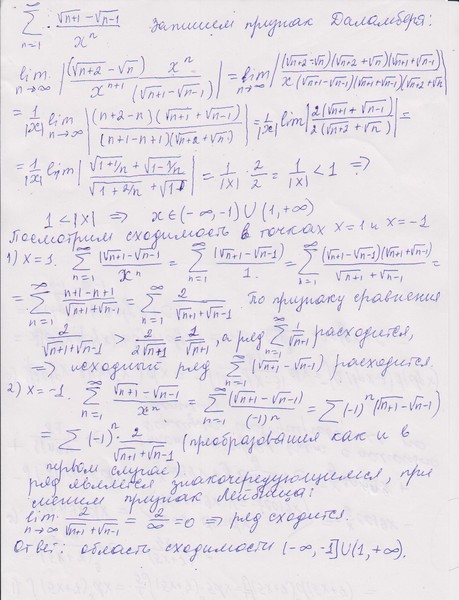 ∞∑n=1 (√(n+1) − √(n−1))/xⁿ Запишем признак Даламбера:
lim n→∞ |(√(n+2) − √n)/xⁿ⁺¹ · xⁿ/(√(n+1) − √(n−1))| = lim n→∞ |(√(n+2) − √n)(√(n+2) + √n)(√(n+1) + √(n−1))/(x(√(n+1) − √(n−1))(√(n+1) + √(n−1))(√(n+2) + √n))|
= 1/|x| lim n→∞ |(n+2−n)(√(n+1) + √(n−1))/((n+1−n+1)(√(n+2) + √n))| = 1/|x| lim |2(√(n+1) + √(n−1))/(2(√(n+2) + √n))| =
= 1/|x| lim |(√(1+1/n) + √(1−1/n))/(√(1+2/n) + √1)| = 1/|x| · 2/2 = 1/|x| < 1 ⇒
1 < |x| ⇒ x ∈ (−∞, −1) ∪ (1, +∞)
Посмотрим сходимость в точках x = 1 и x = −1
1) x = 1. ∞∑n=1 (√(n+1) − √(n−1))/xⁿ = ∞∑n=1 (√(n+1) − √(n−1))/1 = ∞∑n=1 (√(n+1) − √(n−1))(√(n+1) + √(n−1))/(√(n+1) + √(n−1)) =
= ∞∑n=1 (n+1−n+1)/(√(n+1) + √(n−1)) = ∞∑n=1 2/(√(n+1) + √(n−1)) по признаку сравнения
2/(√(n+1) + √(n−1)) > 2/(2√(n+1)) = 1/√(n+1), а ряд ∞∑n=1 1/√(n+1) расходится,
⇒ исходный ряд ∞∑n=1 (√(n+1) − √(n−1)) расходится.
2) x = −1. ∞∑n=1 (√(n+1) − √(n−1))/xⁿ = ∞∑n=1 (√(n+1) − √(n−1))/(−1)ⁿ = ∑(−1)ⁿ(√(n+1) − √(n−1))
= ∑(−1)ⁿ · 2/(√(n+1) + √(n−1)) (преобразования как и в
первом случае)
ряд является знакочередующемся, при
меним признак Лейбница:
lim n→∞ 2/(√(n+1) + √(n−1)) = 2/∞ = 0 ⇒ ряд сходится.
Ответ: область сходимости (−∞, −1] ∪ (1, +∞).